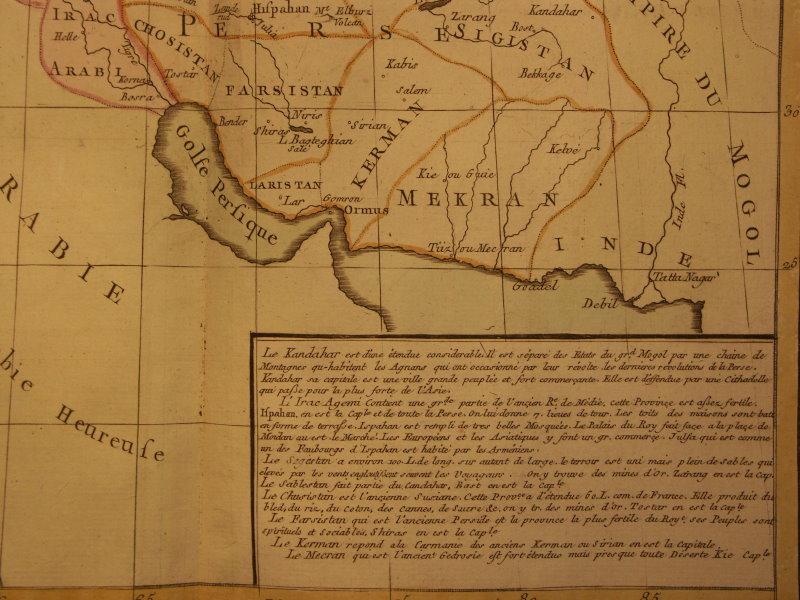 Hispahan
Mt. Elburz
Volcan
Julfa
Larang
Kandahar
Bost
IRAC
ARABI
Helle
Tigre
Korna
Bosra
CHOSISTAN
Tostar
PERSE
SIGISTAN
Bekkage
EMPIRE DU
MOGOL
Kabis
Salem
FARSISTAN
Niris
Bender
Shiras
Sirian
L. Bagteghian
Salé
KERMAN
Kelvé
Kie ou Guie
MEKRAN
LARISTAN
Lar
Gomron
Ormus
Golfe Persique
Tiiz ou Mecran
INDE
Inde Fl.
Goadel
Debil
Tatta Nagar
30
25
ARABIE
bie Heureuse
Le Kandahar est d'une étendue considerable. Il est séparé des Etats du grd. Mogol par une chaine de
Montagnes qu-habitent les Agnans qui ont occasionné par leur revolte les dernieres révolutions de la Perse.
Kandahar sa capitale est une ville grande peuplée et fort commerçante. Elle est deffendue par une Cithadelle
qui passe pour la plus forte de l'Asie.
L'Irac Agemi Contient une grde partie de l'ancien Re. de Médie, cette Province est assez fertile.
Ispahan, en est la Caple et de toute la Perse. On lui donne 7. lieues de tour. Les toits des maisons sont bati
en forme de terrasse. Ispahan est rempli de tres belles Mosquées. Le Palais du Roy fait face a la place de
Meidan ou est le Marché. Les Européens et les Asiatiques y font un gr. commerce. Julfa qui est comme
un des Faubourgs d'Ispahan est habité par les Arméniens.
Le Segestan a environ 100. L. de long. sur autant de large. le terroir est uni mais plein de sables qui
elevés par les vents engloutissent souvent les Voyageurs. on y trouve des mines d'or. Zarang en est la Cap.
Le Sablestan fait partie du Candahar, Bost en est la Caple
Le Chusistan est l'ancienne Susiane. Cette Provce. a d'étendue 60. L. com. de France. Elle produit du
bled, du riz, du coton, des cannes, de sucre &c. on y tr. des mines d'or. Tostar en est la caple
Le Farsistan qui est l'ancienne Perside est la province la plus fertile du Roye. ses Peuples sont
spirituels et sociables, Shiras en est la Caple
Le Kerman repond a la Carmanie des anciens Kerman ou Sirian en est la Capitale.
Le Mecran qui est l'ancient Gedrosie est fort étendue mais presque toute Déserte Kie Caple
65
75
80
85